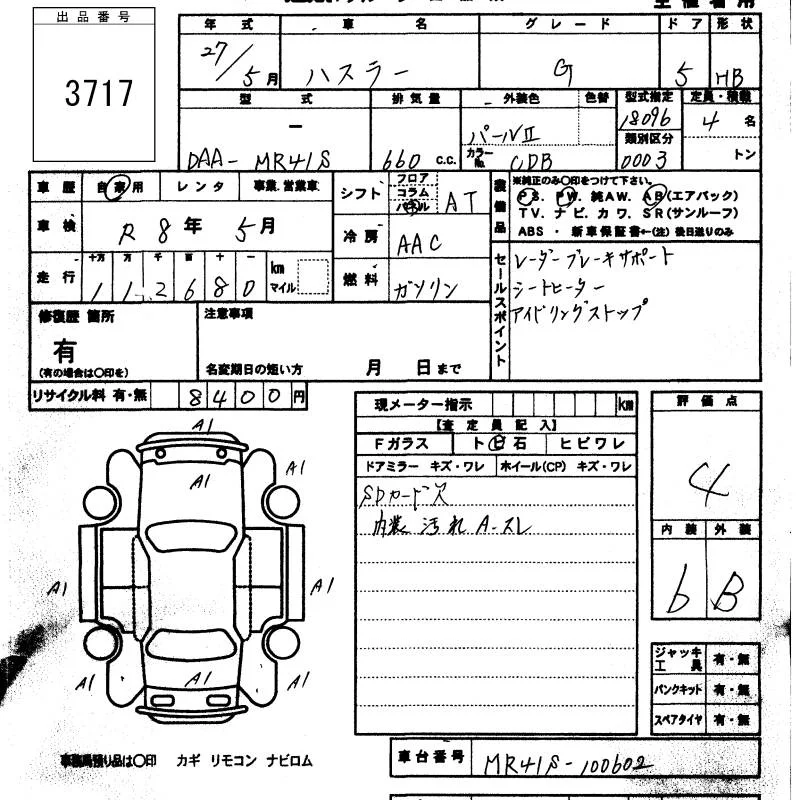 出品番号
3717
年式 車名 グレード ドア 形状
27/5月 ハスラー G 5 HB
型式 排気量 外装色 色替 型式指定 定員・積載
18096 4名
ー パールⅡ 類別区分
DAA- MR41S 660 c.c. カラーNo. CDB 0003 トン
車歴 自家用 レンタ 事業.営業車 シフト フロア コラム パネル AT
車検 R8年 5月 冷房 AAC
走行 十万 万 千 百 十 一 km マイル
112680 燃料 ガソリン
装備品 ※純正のみ○印をつけて下さい。
PS. PW. 純AW. AB(エアバック)
TV. ナビ. カワ. SR(サンルーフ)
ABS ・ 新車保証書←(注) 後日送りのみ
セールスポイント
レーダーブレーキサポート
シートヒーター
アイドリングストップ
修復歴 箇所 注意事項
有
(有の場合は○印を) 名変期日の短い方 月 日まで
リサイクル料 有・無 8400円
現メーター指示 km
【査定員記入】
Fガラス トビ石 ヒビワレ
ドアミラー キズ・ワレ ホイール(CP) キズ・ワレ
SDカード欠
内装 汚れ A-スレ
評価点
4
内装 外装
6 B
A1
A1
A1
A1
A1
A1
A1
A1
ジャッキ工具 有・無
パンクキット 有・無
スペアタイヤ 有・無
事務局預り品は○印 カギ リモコン ナビロム
車台番号 MR41S-100602